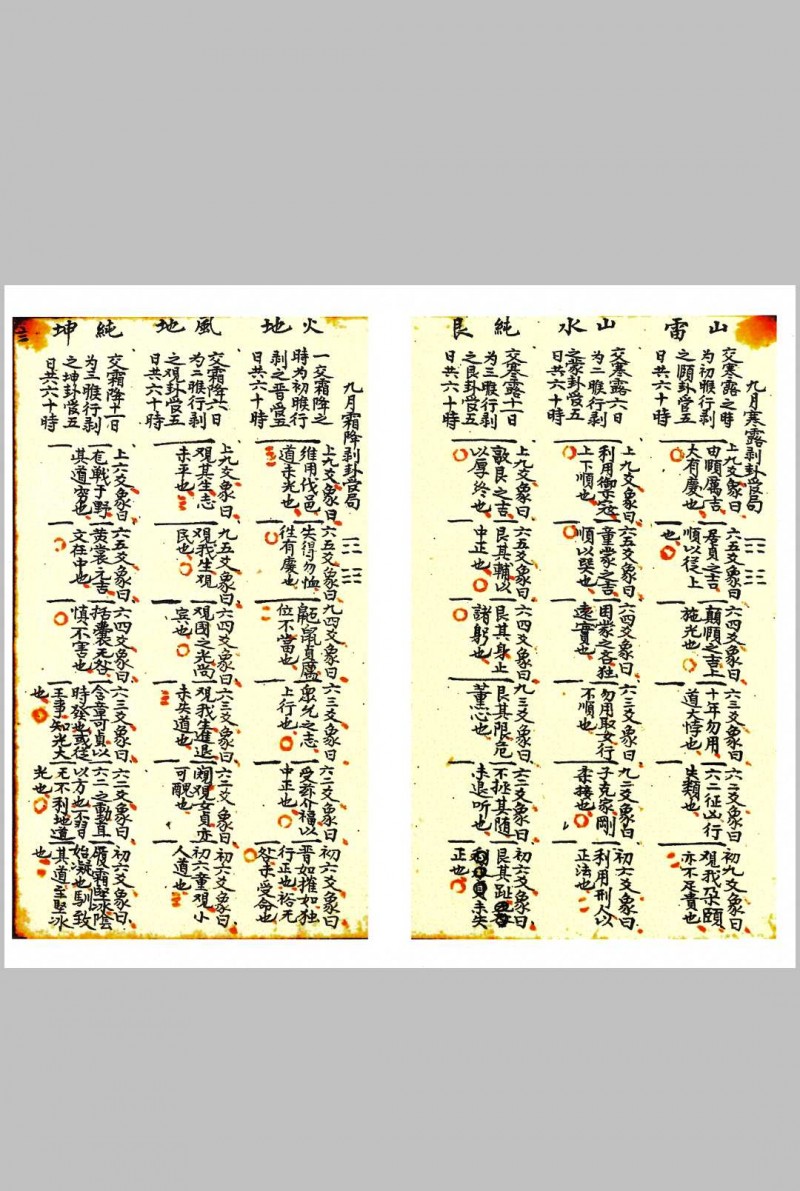 九月寒露剥卦管局
山雷
交寒露之時
为初候行剥
之頤卦管五
日共六十時
上九爻象曰
由頤厲吉
大有慶也
六五爻象曰
居貞之吉
順以從上
也
六四爻象曰
顛頤之吉上
施光也
六三爻象曰
十年勿用
道大悖也
六二爻象曰
六二征凶行
失類也
初九爻象曰
觀我朵頤
亦不足貴也
山水
交寒露六日
为二候行剥
之蒙卦管五
日共六十時
上九爻象曰
利用御宼
上下順也
六五爻象曰
童蒙之吉
順以巽也
六四爻象曰
困蒙之吝独
遠實也
六三爻象曰
勿用取女行
不順也
九二爻象曰
子克家剛
柔接也
初六爻象曰
利用刑人以
正法也
純艮
交寒露十一日
为三候行剥
之艮卦管五
日共六十時
上九爻象曰
敦艮之吉
以厚終也
六五爻象曰
艮其輔以
中正也
六四爻象曰
艮其身止
諸躬也
九三爻象曰
艮其限危
薰心也
六二爻象曰
不拯其随
未退听也
初六爻象曰
艮其趾
未失
正也
九月霜降剥卦管局
火地
一交霜降之
時为初候行
剥之晋管五
日共六十時
上九爻象曰
维用伐邑
道未光也
六五爻象曰
失得勿恤
往有慶也
九四爻象曰
鼫鼠貞厲
位不當也
六三爻象曰
眾允之志
上行也
六二爻象曰
受茲介福以
中正也
初六爻象曰
晋如摧如独
行正也裕无
咎未受命也
風地
交霜降六日
为二候行剥
之观卦管五
日共六十時
上九爻象曰
观其生志
未平也
九五爻象曰
观我生观
民也
六四爻象曰
观國之光尚
宾也
六三爻象曰
观我生進退
未失道也
六二爻象曰
闚观女貞亦
可醜也
初六爻象曰
初六童观小
人道也
純坤
交霜降十一日
为三候行剥
之坤卦管五
日共六十時
上六爻象曰
竜戰于野
其道窮也
六五爻象曰
黄裳元吉
文在中也
六四爻象曰
括囊无咎
慎不害也
六三爻象曰
含章可貞以
時發也或従
王事知光大
也
六二爻象曰
六二之動直
以方也不習
无不利地道
光也
初六爻象曰
履霜堅冰陰
始凝也馴致
其道至堅冰
也